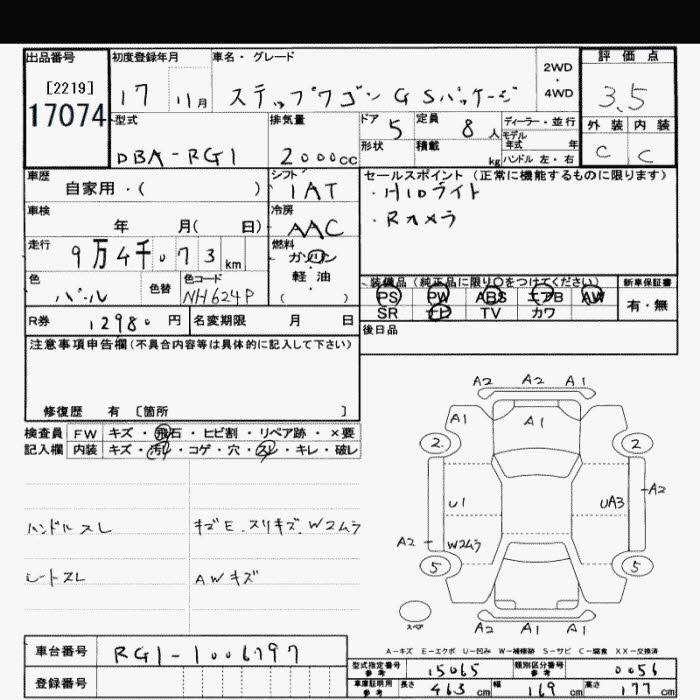 出品番号 初度登録年月 車名・グレード 2WD・4WD 評価点
[2219] 17074
17 11月 ステップワゴン GSパッケージ 3.5
型式 排気量 ドア 5 定員 8人 ディーラー・並行 外装 内装
モデル年式 年
DBA-RG1 2000cc 形状 積載 kg ハンドル 左・右 C C
車歴 シフト セールスポイント(正常に機能するものに限ります)
自家用・( ) IAT ・HIDライト
車検 冷房 ・Rカメラ
年 月( 日) AAC
走行 9万4千073km 燃料 ガソリン・軽油( )
色 パール 色替 色コード NH624P
装備品(純正品に限り○をつけてください) 新車保証書
PS PW ABS エアB AW 有・無
SR ナビ TV カワ
R券 12980円 名変期限 月 日 後日品
注意事項申告欄(不具合内容等は具体的に記入して下さい)
修復歴 有 〔箇所 〕
検査員 FW キズ・飛石・ヒビ割・リペア跡・×要
記入欄 内装 キズ・汚れ・コゲ・穴・スレ・キレ・破レ
ハンドルスレ キズE.スリキズ.W2ムラ
シートスレ AWキズ
A2 A2 A1
A1 A1
2 2
U1 UA3 A2
A2 W2ムラ
5 5
スペア A1 A1 A2
A-キズ E-エクボ U-凹み W-補修跡 S-サビ C-腐食 XX-交換済
車台番号 RG1-1006797
型式指定番号 参考 15065 類別区分番号 参考 0056
登録番号
車庫証明用 参考 長さ 463cm 幅 169cm 高さ 177cm